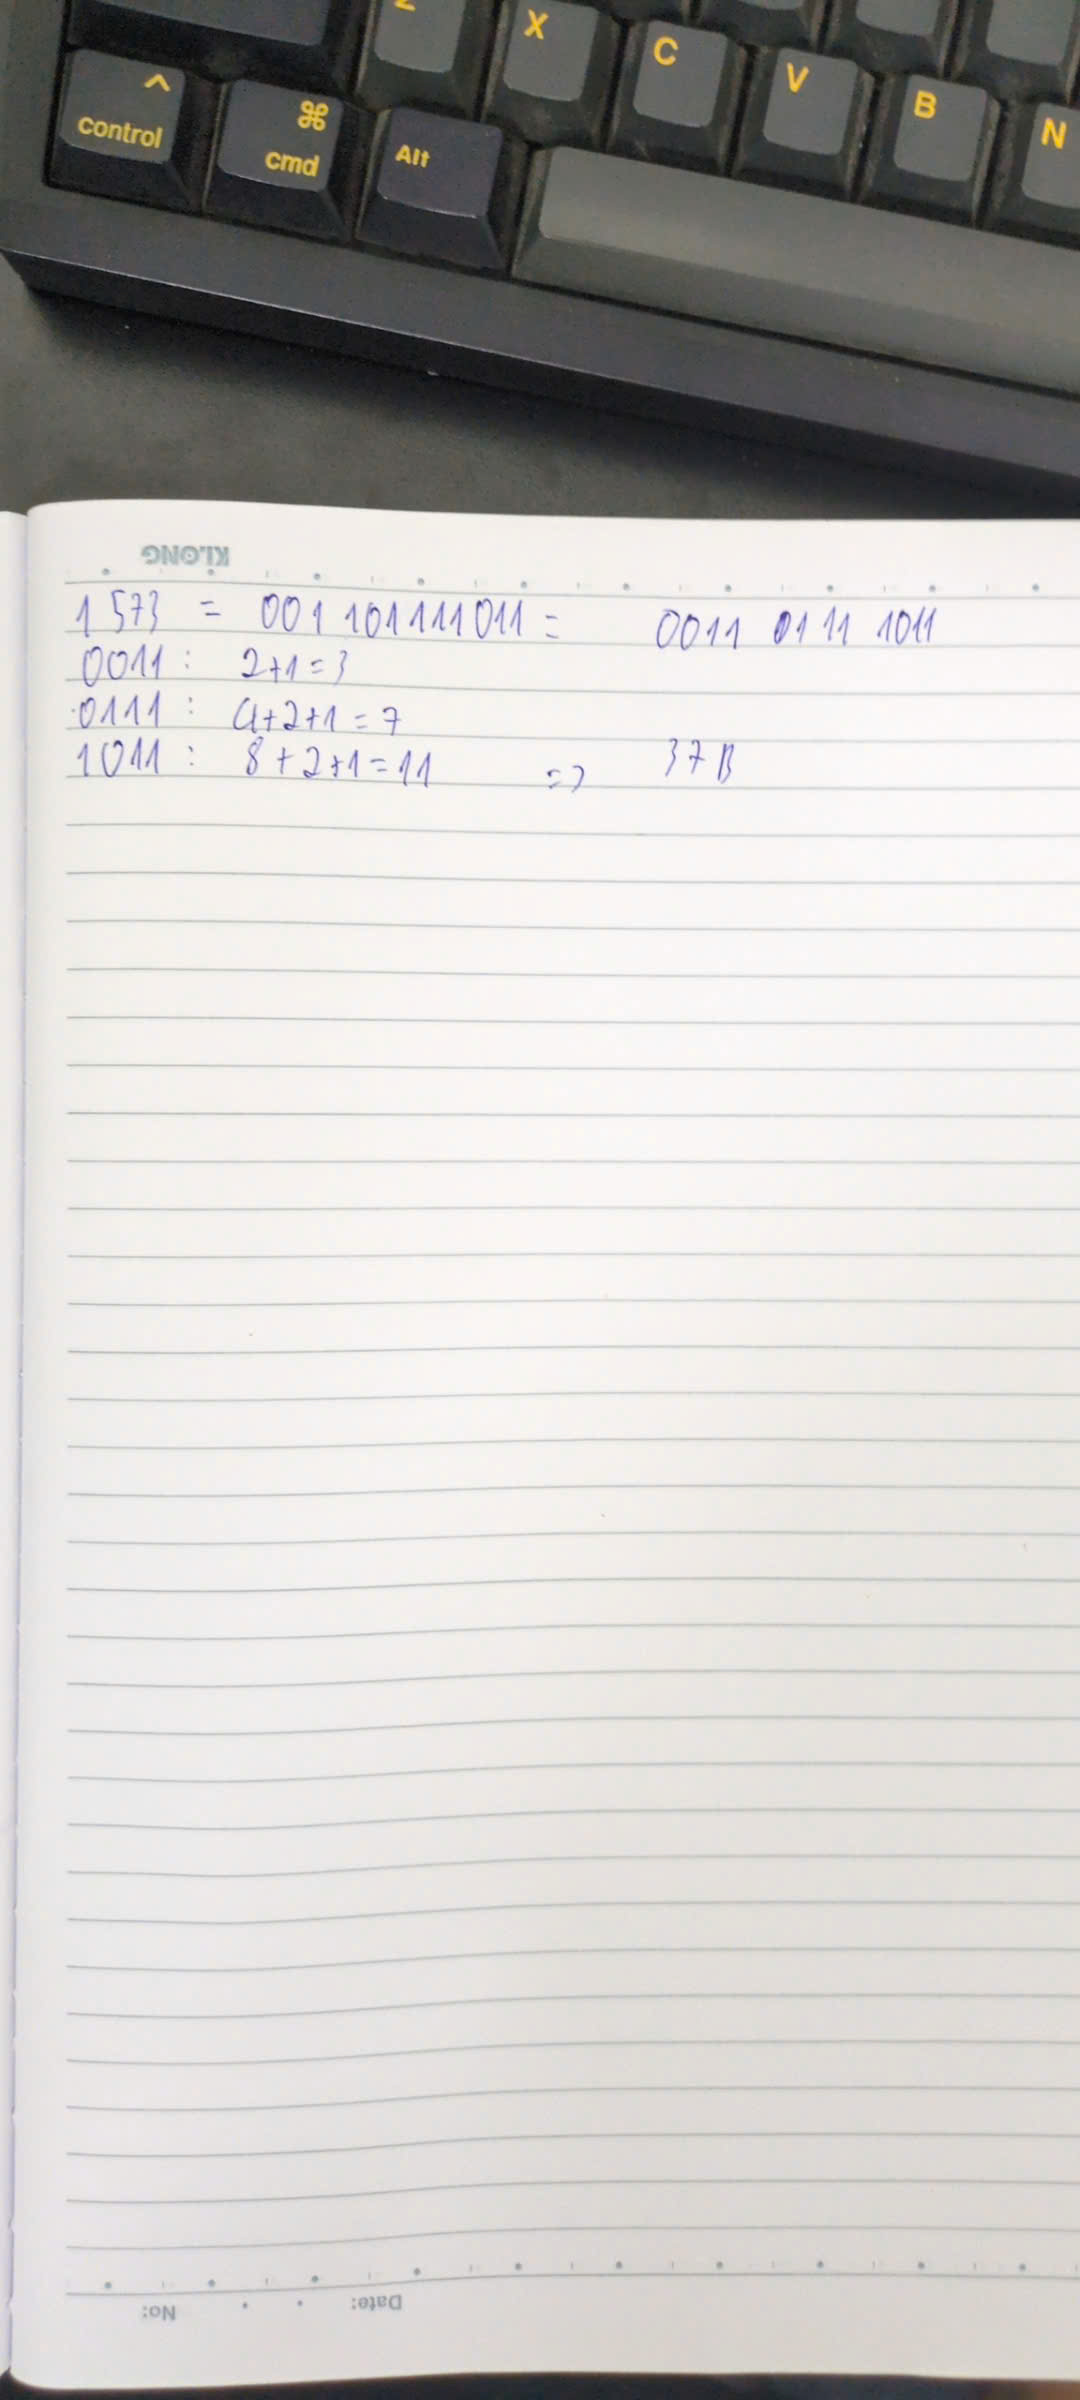 Z X C V B N
^ control ⌘ cmd Alt
KLONG
1 573 = 001 101111011 = 0011 0111 1011
0011 : 2+1=3
0111 : 4+2+1=7
1011 : 8+2+1=11 => 37B
No: Date: